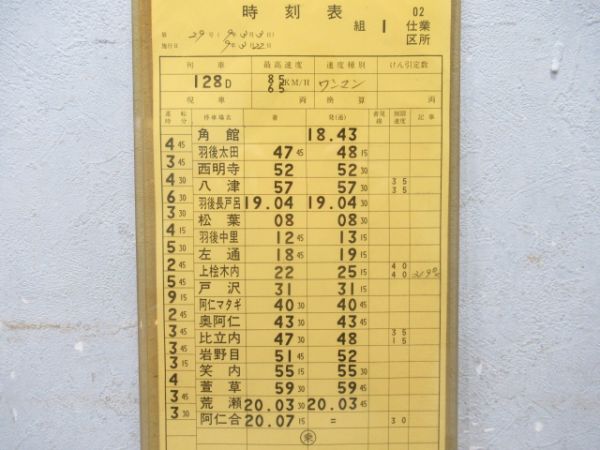 時刻表
組 1 02 仕業
区所
第 29号(92年3月3日)
施行日 92年3月22日
列車 最高速度 速度種別 けん引定数
128D 85 65 KM/H ワンマン
現車 両 換算 両
運転時分 停車場名 着 発(通) 着発線 制限速度 記事
角館 18.43
4 45 羽後太田 47 45 48 15
3 45 西明寺 52 52 30
4 30 八津 57 57 30 35 35
6 30 羽後長戸呂 19.04 19.04 30
3 30 松葉 08 08 30
4 15 羽後中里 12 45 13 15
5 30 左通 18 45 19 15
2 45 上桧木内 22 25 15 40 40
5 45 戸沢 31 31 15
9 15 阿仁マタギ 40 30 40 45
2 45 奥阿仁 43 30 43 45
3 45 比立内 47 30 48 35 15
3 45 岩野目 51 45 52
3 15 笑内 55 15 55 30
4 萱草 59 30 59 45
3 45 荒瀬 20.03 30 20.03 45
3 30 阿仁合 20.07 15 = 30
乗